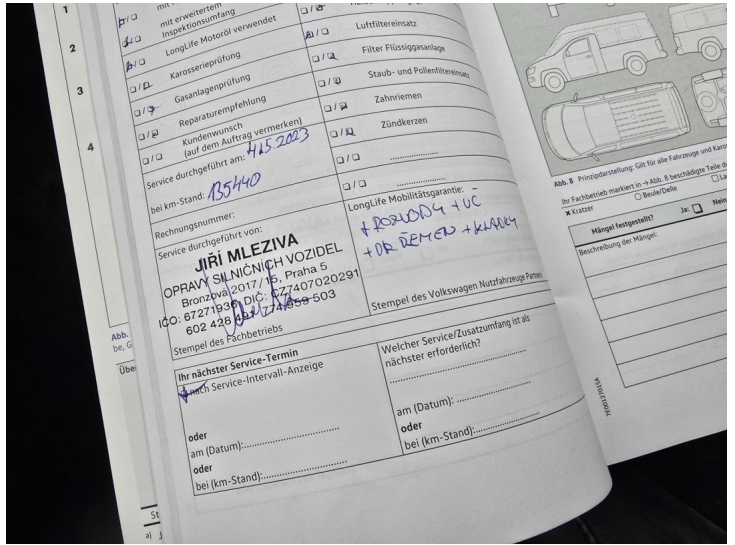 1
2
3
4
mit erweitertem
Inspektionsumfang
LongLife Motoröl verwendet
Karosserieprüfung
Gasanlagenprüfung
Reparaturempfehlung
Kundenwunsch
(auf dem Auftrag vermerken)
Service durchgeführt am: 4.5.2023
bei km-Stand: 135440
Rechnungsnummer:
Service durchgeführt von:
JIŘÍ MLEZIVA
OPRAVY SILNIČNÍCH VOZIDEL
Bronzová 2017/15, Praha 5
IČO: 67271936, DIČ: CZ7407020291
602 428 491, 774 959 503
Stempel des Fachbetriebs
Luftfiltereinsatz
Filter Flüssiggasanlage
Staub- und Pollenfiltereinsatz
Zahnriemen
Zündkerzen
LongLife Mobilitätsgarantie:
+ ROZVODY + VČ
+ DR ŘEMEN + KLADKY
Stempel des Volkswagen Nutzfahrzeuge Partner
Ihr nächster Service-Termin
nach Service-Intervall-Anzeige
oder
am (Datum):
oder
bei (km-Stand):
Welcher Service/Zusatzumfang ist als
nächster erforderlich?
am (Datum):
oder
bei (km-Stand):
Abb. 8 Prinzipdarstellung: Gilt für alle Fahrzeuge und Karos
Ihr Fachbetrieb markiert in → Abb. 8 beschädigte Teile d
Kratzer
Beule/Delle
La
Mängel festgestellt?
Ja:
Nein
Beschreibung der Mängel:
7E0012701SA
Abb.
be, G
Über
St
a) J